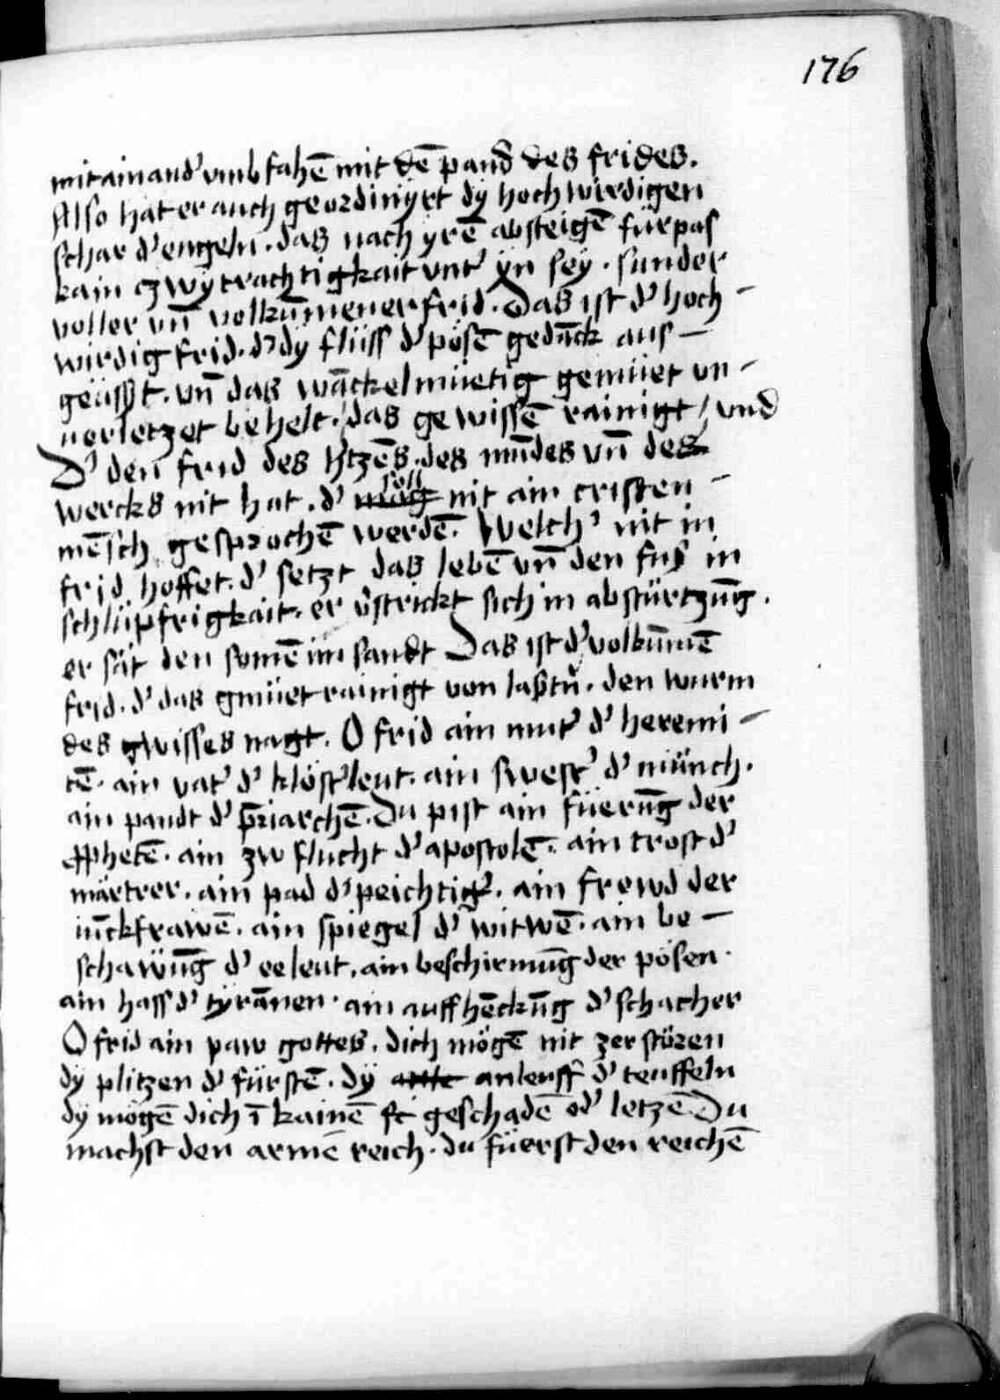 176
mitainand' vmb fahē mit dē pand des frides.
Also hat er auch geordiniyrt dÿ hoch wirdigen
schar d' engeln. das nach yrē absteigē fürpas
kain czwytrachtigkait vnt' yn seÿ. sunder
voller vn̄ volkūmener frid. Das ist d' hoch-
wirdig frid. d' dÿ flüss d' pösē gedāck aus-
geüsst. vn̄ das wāckelmüetig gemüet vn-
uerletzet behelt. das gewissē rainigt / vnd
D' den frid des h'tzēs. des mūdes vn̄ des
wercks nit hat. d' soll nit ain cristen-
mēsch gesprochē werdē. Welch' nit in
frid hoffet. d' setzt das lebē vn̄ den fuß in
schlüpfrigkait. er v'strickt sich in abstürtzūg.
er sät den somē im sandt Das ist d' volkūmē
frid. d' das gmüet rainigt von lastn̄. den wurm
des gwisses nagt. O frid ain mut' d' heremi-
tē. ain vat' d' klöst'leut. ain swest' d' münch.
ain pandt d' p̄riarchē. Du pist ain füerūg der
ꝓphetē. ain zw flucht d' apostolē. ain trost d'
märtrer. ain pad d' peichtig'. ain frewd der
iūckfrawē. ain spiegel d' witwē. ain be-
schawūg d' eeleut. ain beschirmūg der pösen.
ain hass d' tyrānen. ain auffhēckūg d' schacher
O frid ain paw gottes. dich mögē nit zerstören
dÿ plitzen d' fürstē. dÿ anleuff d' teuffeln
dÿ mögē dich ī kainē geschadē od' letzē Du
machst den armē reich. du füerst den reichē